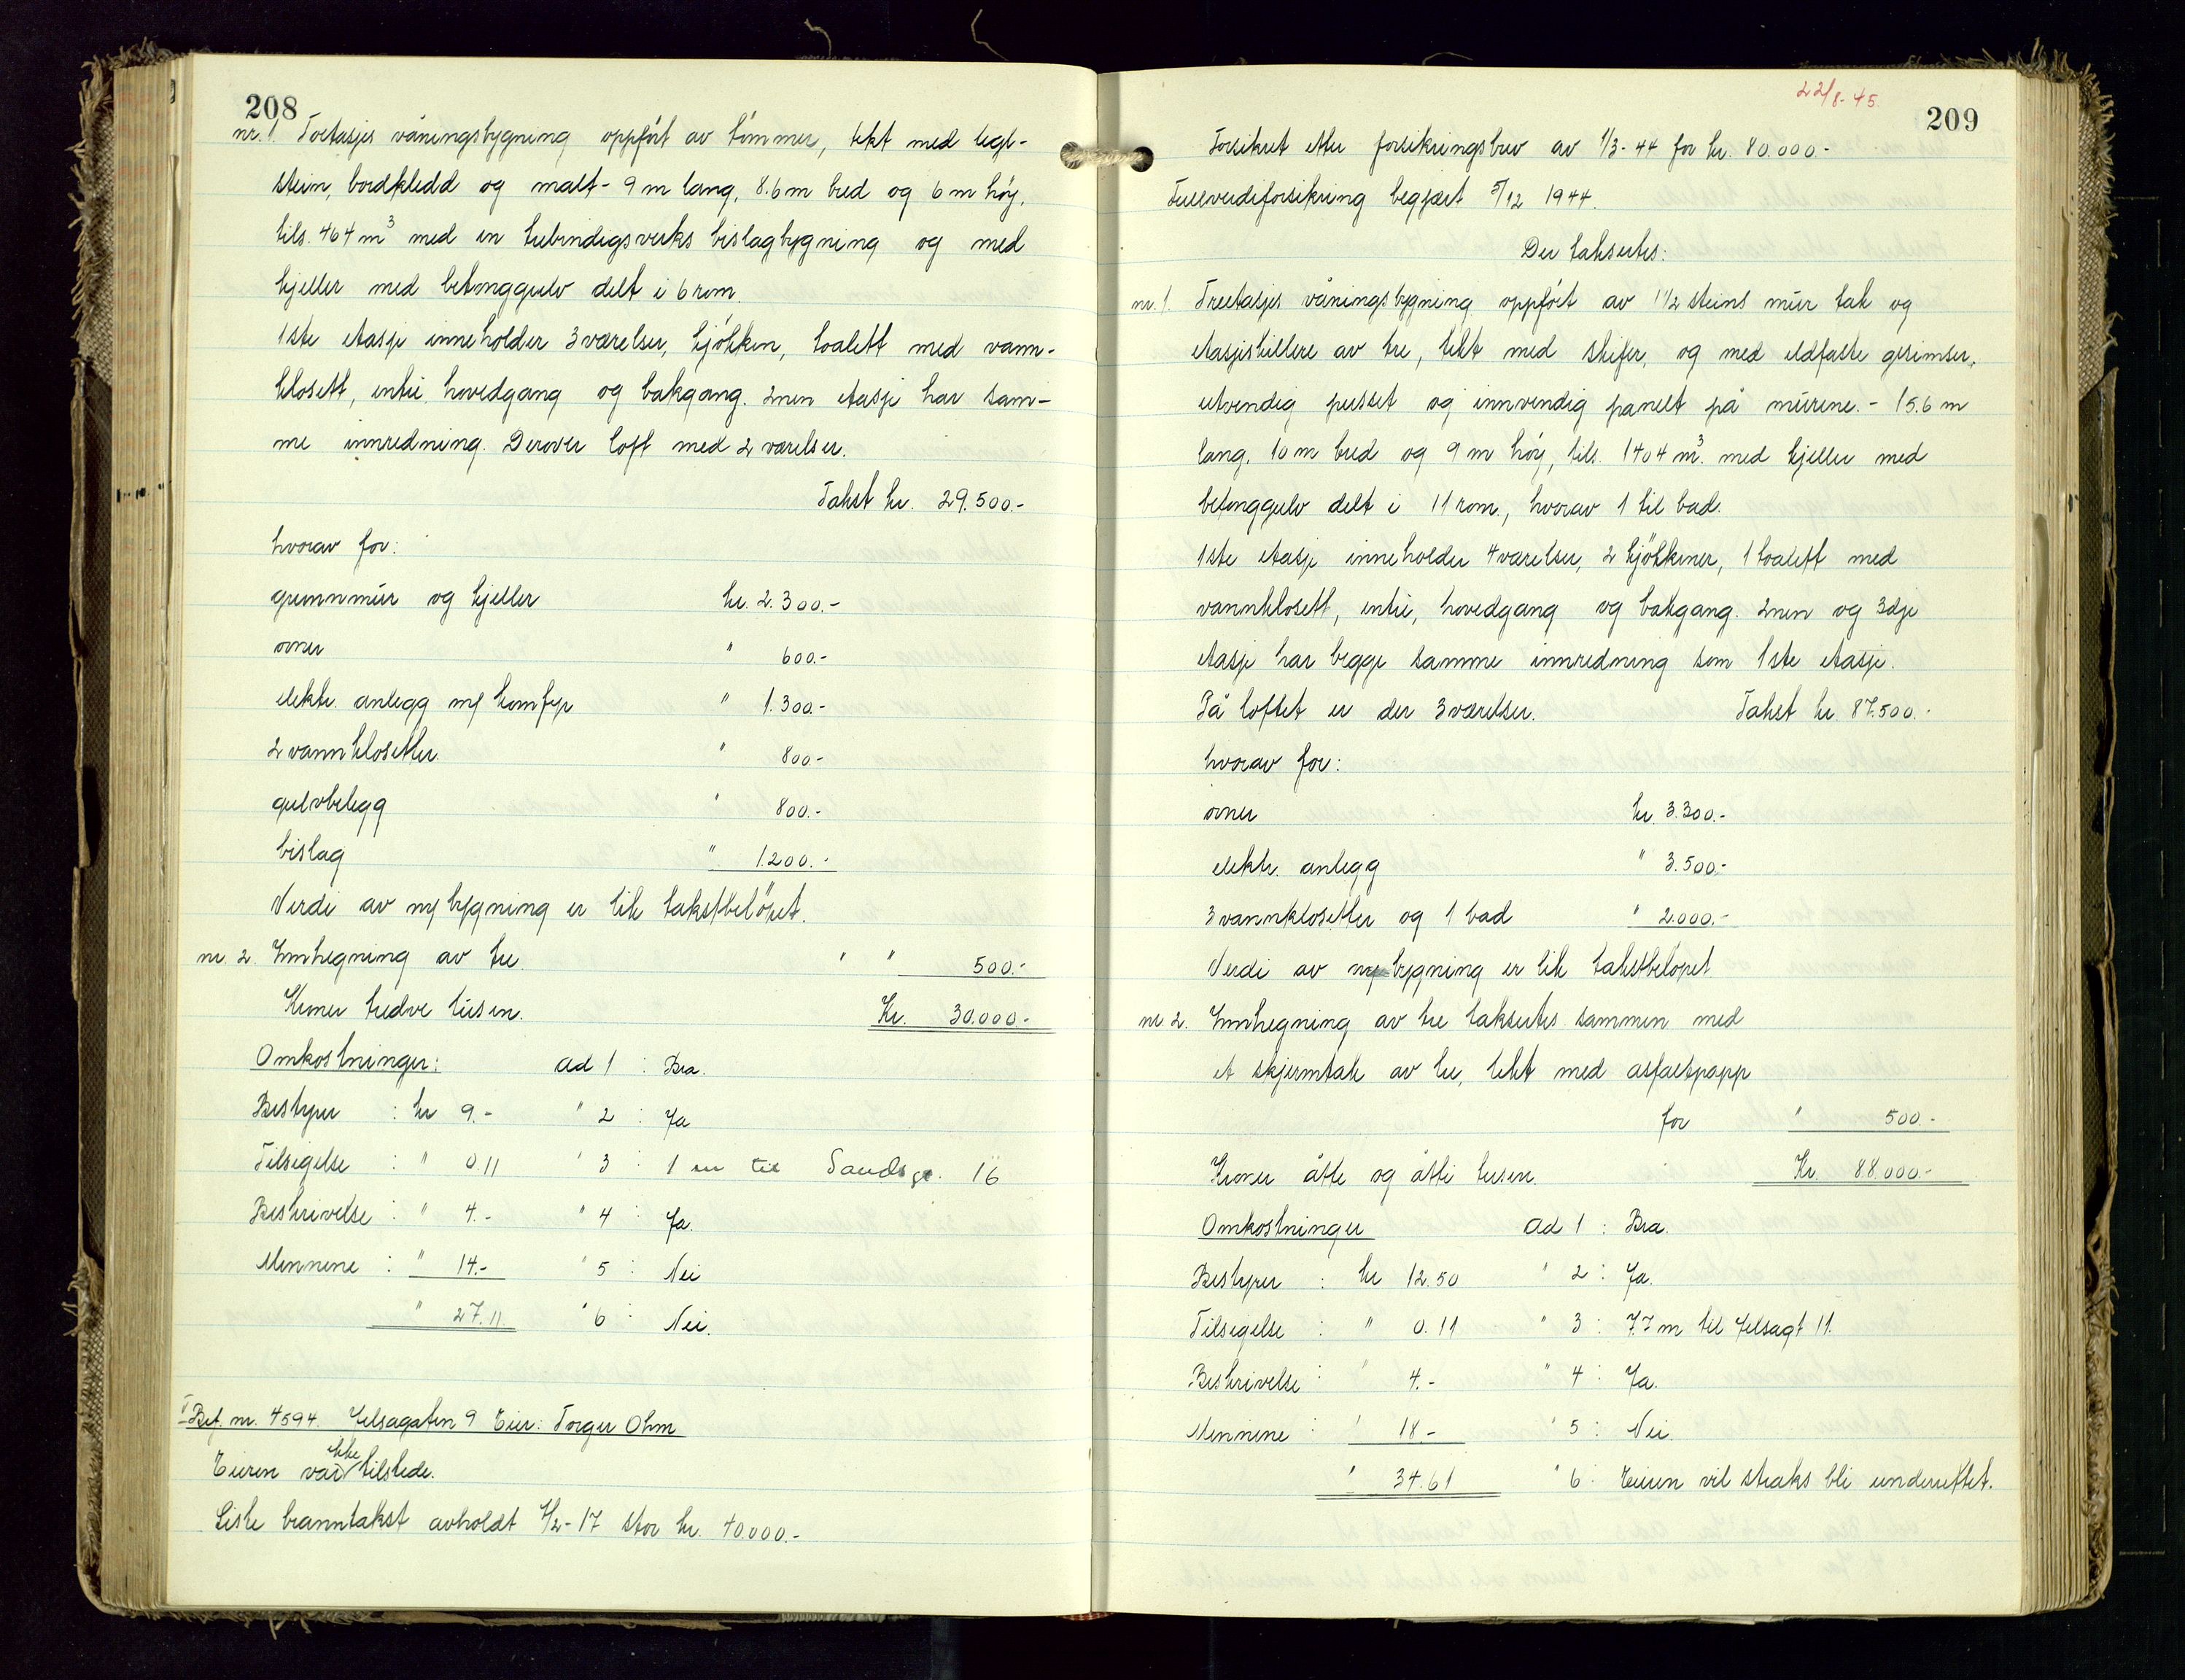 208
nr. 1. Toetasjes våningsbygning oppført av tømmer, tekt med tegl-
stein, bordkledd og malt - 9 m lang, 8.6 m bred og 6 m høy,
tils. 464 m³ med en trebindigsverks bislagbygning og med
kjeller med betonggulv delt i 6 rom.
1ste etasje inneholder 3 værelser, kjøkken, toalett med vann-
klosett, entré, hovedgang og bakgang. 2nen etasje har sam-
me innredning. Derover loft med 2 værelser.
Takst kr. 29.500.-
hvorav for:
grunnmur og kjeller kr. 2.300.-
ovner " 600.-
elektr. anlegg m/ komfyr " 1.300.-
2 vannklosetter " 800.-
gulvbelegg " 800.-
bislag " 1.200.-
Verdi av ny bygning er lik takstbeløpet.
nr. 2. Innhegning av tre " " 500.-
Kroner tredve tusen. Kr. 30.000.-
Omkostninger: ad 1 : Bra.
Bestyrer : kr 9.- " 2 : Ja
Tilsigelse : " 0.11 " 3 : 1 m til Sandsgt. 16
Beskrivelse : " 4.- " 4 : Ja.
Mennene : " 14.- " 5 : Nei
" 27.11 " 6 : Nei.
Bef. nr. 4594. Jelsagaten 9 Eier: Torger Ohm
Eieren var ikke tilstede.
Siste branntakst avholdt 1/2-17 stor kr. 40.000.-
22/8-45.
209
Forsikret etter forsikringsbrev av 1/3-44 for kr. 80.000.-
Fullverdiforsikring begjært 5/12 1944.
Der takseres:
nr. 1. Treetasjes våningsbygning oppført av 1 1/2 steins mur tak og
etasjeskillere av tre, tekt med skifer, og med ildfaste gesimser,
utvendig pusset og innvendig panelt på murene. - 15.6 m
lang, 10 m bred og 9 m høy, tils. 1404 m³. med kjeller med
betonggulv delt i 11 rom, hvorav 1 til bad.
1ste etasje inneholder 4 værelser, 2 kjøkkener, 1 toalett med
vannklosett, entré, hovedgang og bakgang. 2nen og 3dje
etasje har begge samme innredning som 1ste etasje.
På loftet er der 3 værelser. Takst kr. 87.500.-
hvorav for:
ovner kr. 3.300.-
elektr. anlegg " 3.500.-
3 vannklosetter og 1 bad " 2.000.-
Verdi av ny bygning er lik takstbeløpet
nr. 2. Innhegning av tre takseres sammen med
et skjermtak av tre, tekt med asfaltpapp
for " 500.-
Kroner åtte og åtti tusen. Kr. 88.000.-
Omkostninger ad 1 : Bra.
Bestyrer : kr 12.50 " 2 : Ja.
Tilsigelse : " 0.11 " 3 : 7.7 m til Jelsagt 11.
Beskrivelse : " 4.- " 4 : Ja.
Mennene : " 18.- " 5 : Nei.
" 34.61 " 6 : Eieren vil straks bli underrettet.